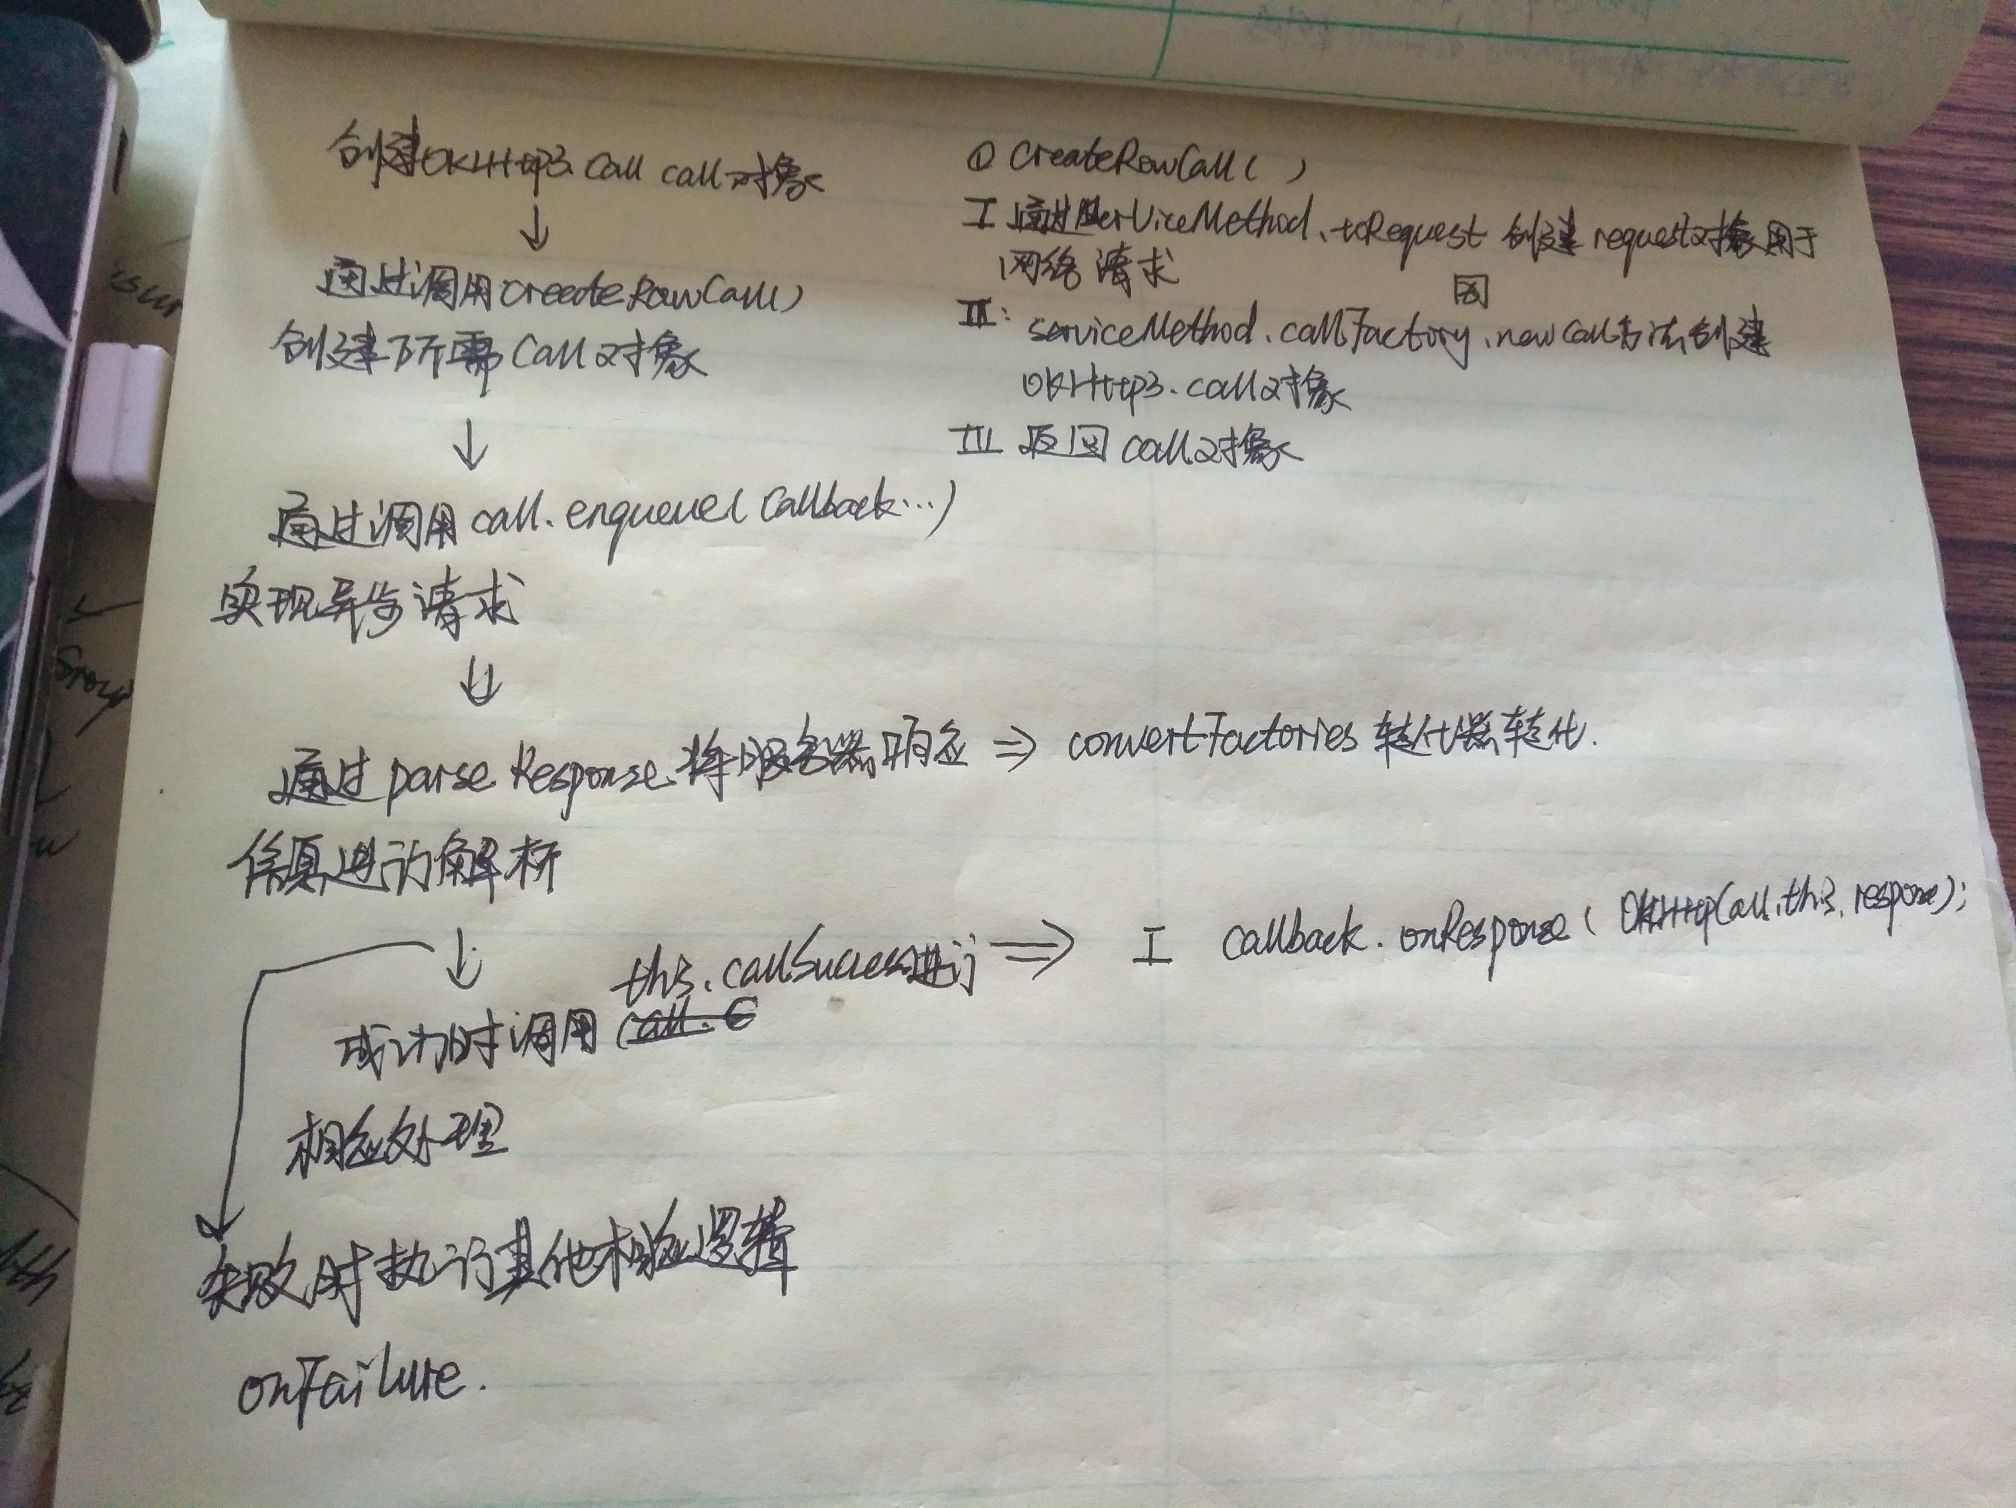 创建OKHttp3.Call call对象
↓
通过调用createRawCall()
创建所需Call对象
↓
通过调用call.enqueue(Callback...)
实现异步请求
↓
通过parseResponse将服务器响应 ⇒ convertFactories 转化器转化.
信息进行解析
↓
this.callSuccess进行 ⇒ I callback.onResponse(OkHttpCall.this, response);
成功时调用
相应处理
失败时执行其他相应逻辑
onFailure.
① createRawCall()
I 通过serViceMethod.toRequest 创建request对象用于
网络请求
II: serviceMethod.callFactory.newCall方法创建
OKHttp3.call对象
III 返回call对象